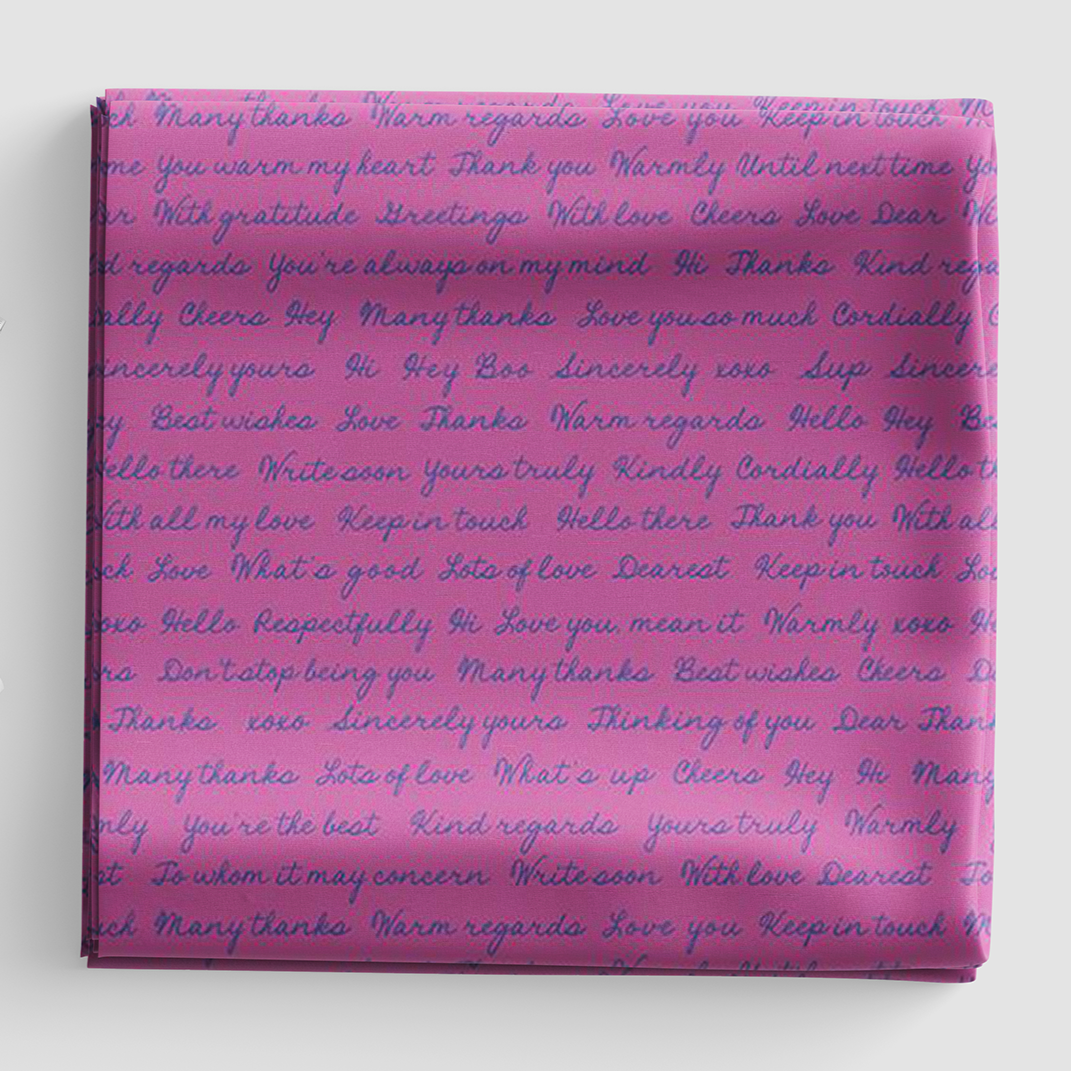 ch Many thanks Warm regards Love you Keep in touch
me You warm my heart Thank you Warmly Until next time You
With gratitude Greetings With love Cheers Love Dear Wi
d regards You're always on my mind Hi Thanks Kind rega
ally Cheers Hey Many thanks Love you so much Cordially
incerely yours Hi Hey Boo Sincerely xoxo Sup Sincere
ey Best wishes Love Thanks Warm regards Hello Hey Bes
ello there Write soon Yours truly Kindly Cordially Hello th
ith all my love Keep in touch Hello there Thank you With all
uch Love What's good Lots of love Dearest Keep in touch Lo
xoxo Hello Respectfully Hi Love you, mean it Warmly xoxo He
rs Don't stop being you Many thanks Best wishes Cheers D
Thanks xoxo Sincerely yours Thinking of you Dear Thank
Many thanks Lots of love What's up Cheers Hey Hi Many
mly You're the best Kind regards Yours truly Warmly
st To whom it may concern Write soon With love Dearest To
uch Many thanks Warm regards Love you Keep in touch M